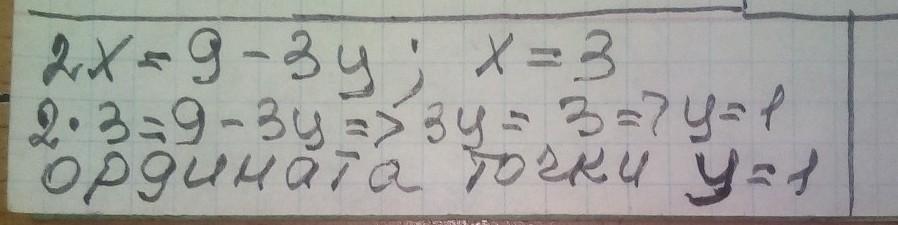 2x = 9 - 3y; x = 3
2 · 3 = 9 - 3y => 3y = 3 => y = 1
ордината точки y = 1